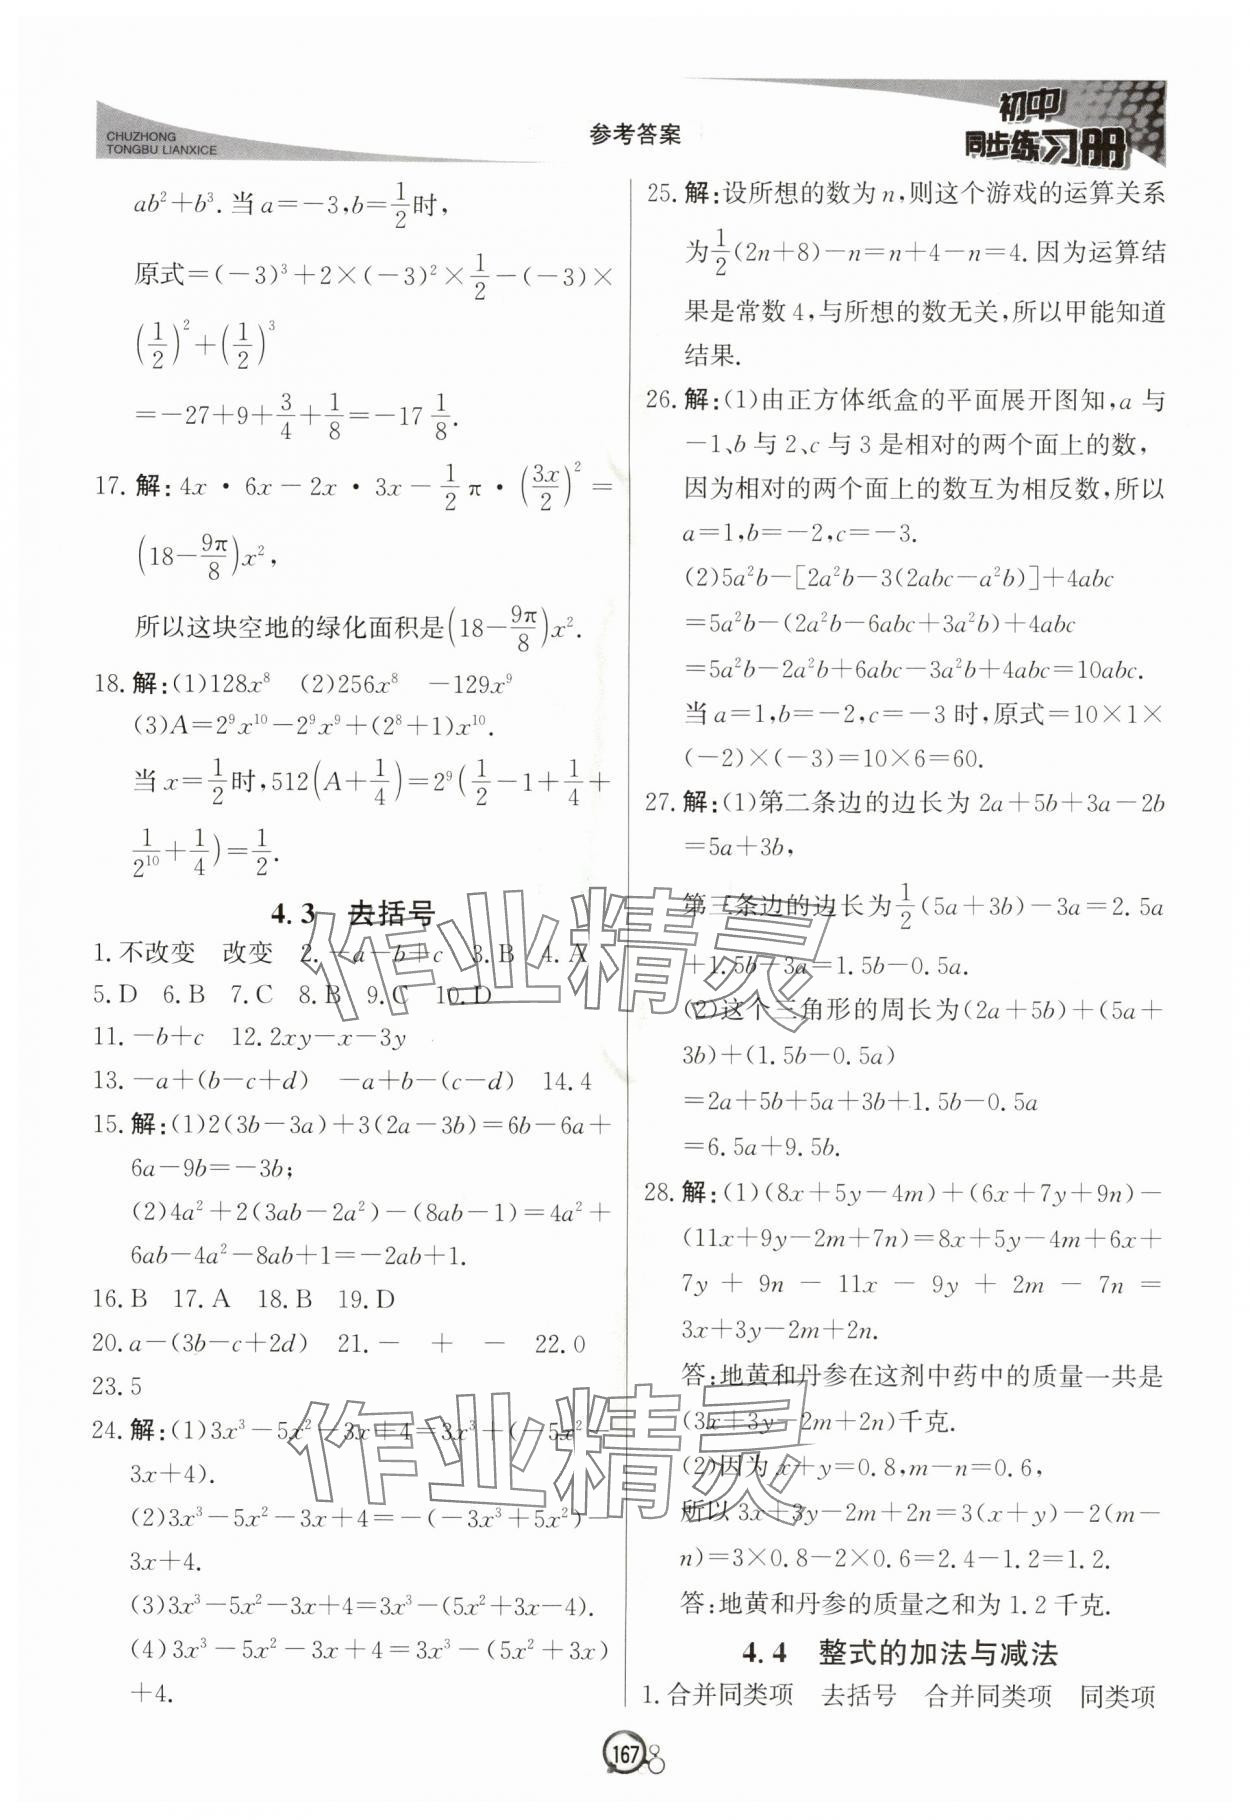 CHUZHONG
TONGBU LIANXICE
参考答案
初中
同步练习册
ab²+b³.当a=-3,b=1/2时,
原式=(-3)³+2×(-3)²×1/2-(-3)×
(1/2)²+(1/2)³
=-27+9+3/4+1/8=-17 1/8.
17.解:4x·6x-2x·3x-1/2π·(3x/2)²=
(18-9π/8)x²,
所以这块空地的绿化面积是(18-9π/8)x².
18.解:(1)128x⁸ (2)256x⁸ -129x⁹
(3)A=2⁹x¹⁰-2⁹x⁹+(2⁸+1)x¹⁰.
当x=1/2时,512(A+1/4)=2⁹(1/2-1+1/4+
1/2¹⁰+1/4)=1/2.
4.3 去括号
1.不改变 改变 2.-a-b+c 3.B 4.A
5.D 6.B 7.C 8.B 9.C 10.D
11.-b+c 12.2xy-x-3y
13.-a+(b-c+d) -a+b-(c-d) 14.4
15.解:(1)2(3b-3a)+3(2a-3b)=6b-6a+
6a-9b=-3b;
(2)4a²+2(3ab-2a²)-(8ab-1)=4a²+
6ab-4a²-8ab+1=-2ab+1.
16.B 17.A 18.B 19.D
20.a-(3b-c+2d) 21.- + - 22.0
23.5
24.解:(1)3x³-5x²-3x+4=3x³+(-5x²
3x+4).
(2)3x³-5x²-3x+4=-(-3x³+5x²)
3x+4.
(3)3x³-5x²-3x+4=3x³-(5x²+3x-4).
(4)3x³-5x²-3x+4=3x³-(5x²+3x)
+4.
25.解:设所想的数为n,则这个游戏的运算关系
为1/2(2n+8)-n=n+4-n=4.因为运算结
果是常数4,与所想的数无关,所以甲能知道
结果.
26.解:(1)由正方体纸盒的平面展开图知,a与
-1、b与2、c与3是相对的两个面上的数,
因为相对的两个面上的数互为相反数,所以
a=1,b=-2,c=-3.
(2)5a²b-[2a²b-3(2abc-a²b)]+4abc
=5a²b-(2a²b-6abc+3a²b)+4abc
=5a²b-2a²b+6abc-3a²b+4abc=10abc.
当a=1,b=-2,c=-3时,原式=10×1×
(-2)×(-3)=10×6=60.
27.解:(1)第二条边的边长为2a+5b+3a-2b
=5a+3b,
第三条边的边长为1/2(5a+3b)-3a=2.5a
+1.5b-3a=1.5b-0.5a.
(2)这个三角形的周长为(2a+5b)+(5a+
3b)+(1.5b-0.5a)
=2a+5b+5a+3b+1.5b-0.5a
=6.5a+9.5b.
28.解:(1)(8x+5y-4m)+(6x+7y+9n)-
(11x+9y-2m+7n)=8x+5y-4m+6x+
7y+9n-11x-9y+2m-7n=
3x+3y-2m+2n.
答:地黄和丹参在这剂中药中的质量一共是
(3x+3y-2m+2n)千克.
(2)因为x+y=0.8,m-n=0.6,
所以3x+3y-2m+2n=3(x+y)-2(m-
n)=3×0.8-2×0.6=2.4-1.2=1.2.
答:地黄和丹参的质量之和为1.2千克.
4.4 整式的加法与减法
1.合并同类项 去括号 合并同类项 同类项
167
作业精灵
作业精灵